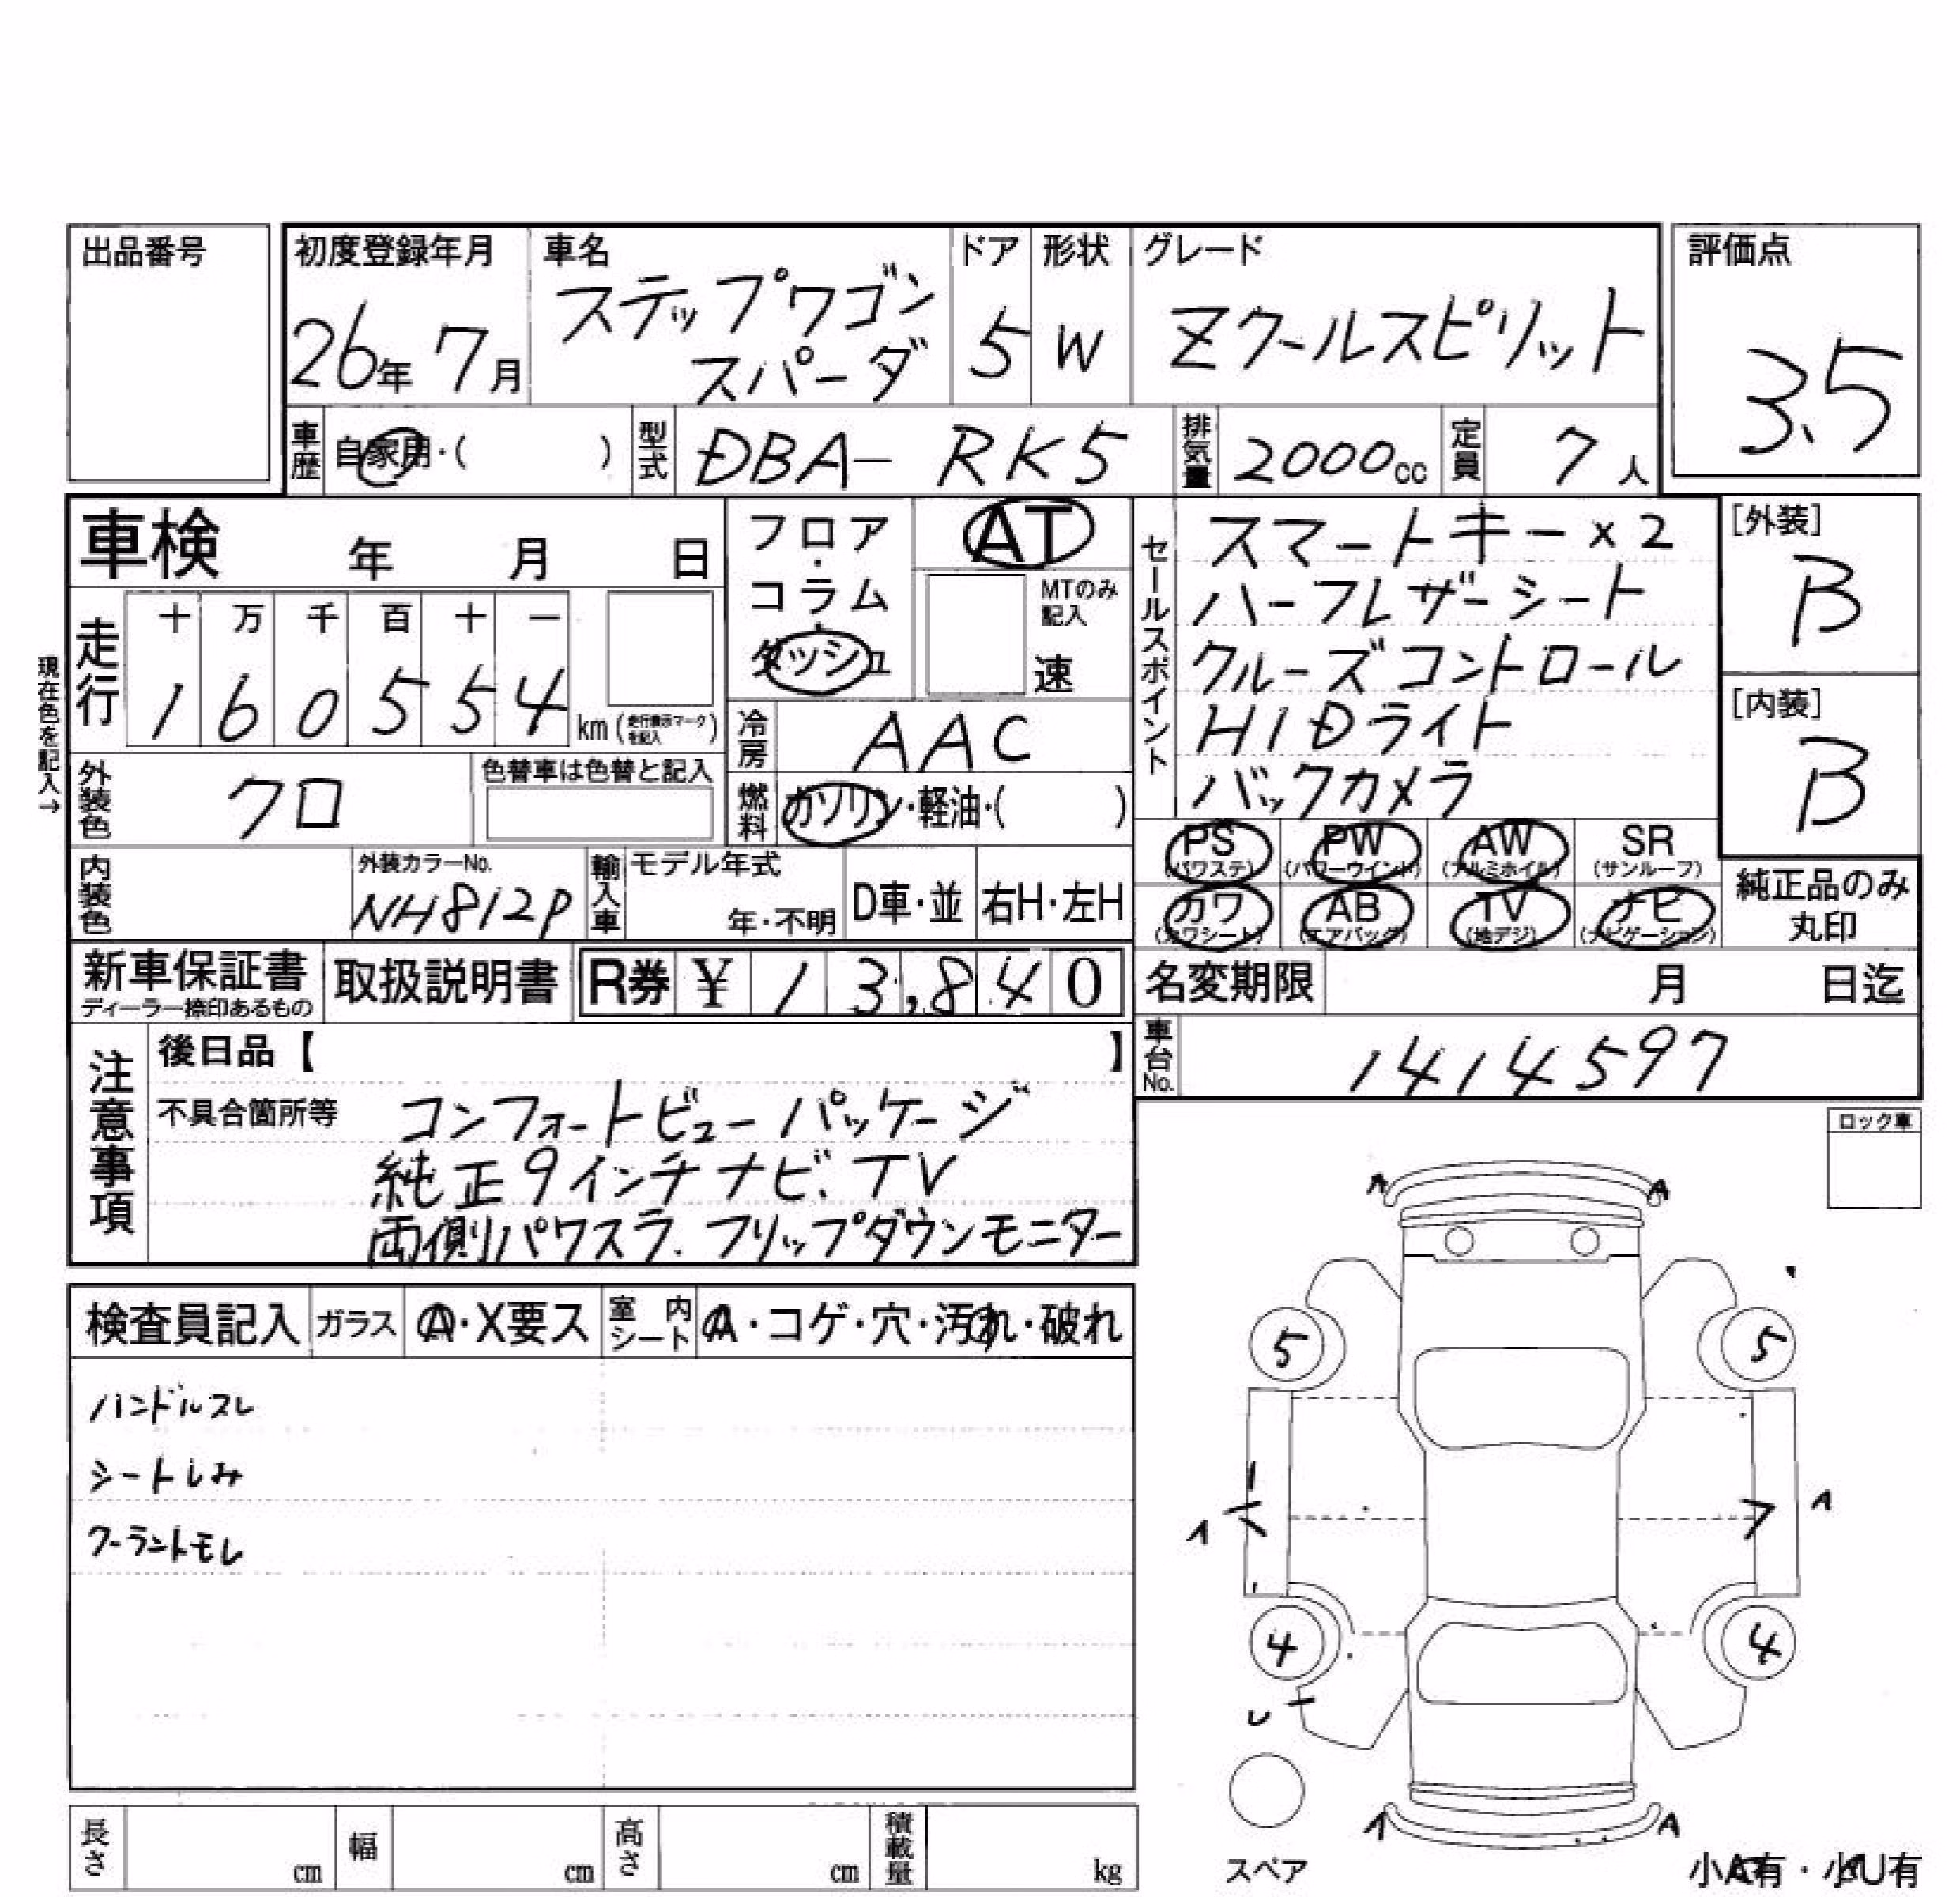 出品番号
初度登録年月 車名 ドア 形状 グレード 評価点
26年 7月 ステップワゴン スパーダ 5 W Zクールスピリット 3.5
車歴 自家用・( ) 型式 DBA- RK5 排気量 2000cc 定員 7人
車検 年 月 日
フロア・コラム・ダッシュ
AT
MTのみ記入
速
セールスポイント
スマートキー×2
ハーフレザーシート
クルーズコントロール
HIDライト
バックカメラ
[外装]
B
[内装]
B
現在色を記入→
走行
十 万 千 百 十 一
1 6 0 5 5 4 km(走行表示マークを記入)
冷房 AAC
燃料 ガソリン・軽油・( )
外装色 クロ 色替車は色替と記入
内装色 外装カラーNo. NH812P
輸入車 モデル年式 年・不明 D車・並 右H・左H
PS (パワステ) PW (パワーウインド) AW (アルミホイル) SR (サンルーフ)
カワ (カワシート) AB (エアバッグ) TV (地デジ) ナビ (ナビゲーション)
純正品のみ
丸印
新車保証書 ディーラー捺印あるもの 取扱説明書 R券 ¥ 13,840
名変期限 月 日迄
車台No. 1414597
注意事項
後日品【 】
不具合箇所等 コンフォートビューパッケージ
純正9インチナビ、TV
両側パワスラ、フリップダウンモニター
ロック車
検査員記入 ガラス A・X要ス 室内シート A・コゲ・穴・汚れ・破れ
ハンドルスレ
シートしみ
クーラントモレ
A A
5 5
A A
4 4
U
A A
スペア
小A有・小U有
長さ cm 幅 cm 高さ cm 積載量 kg